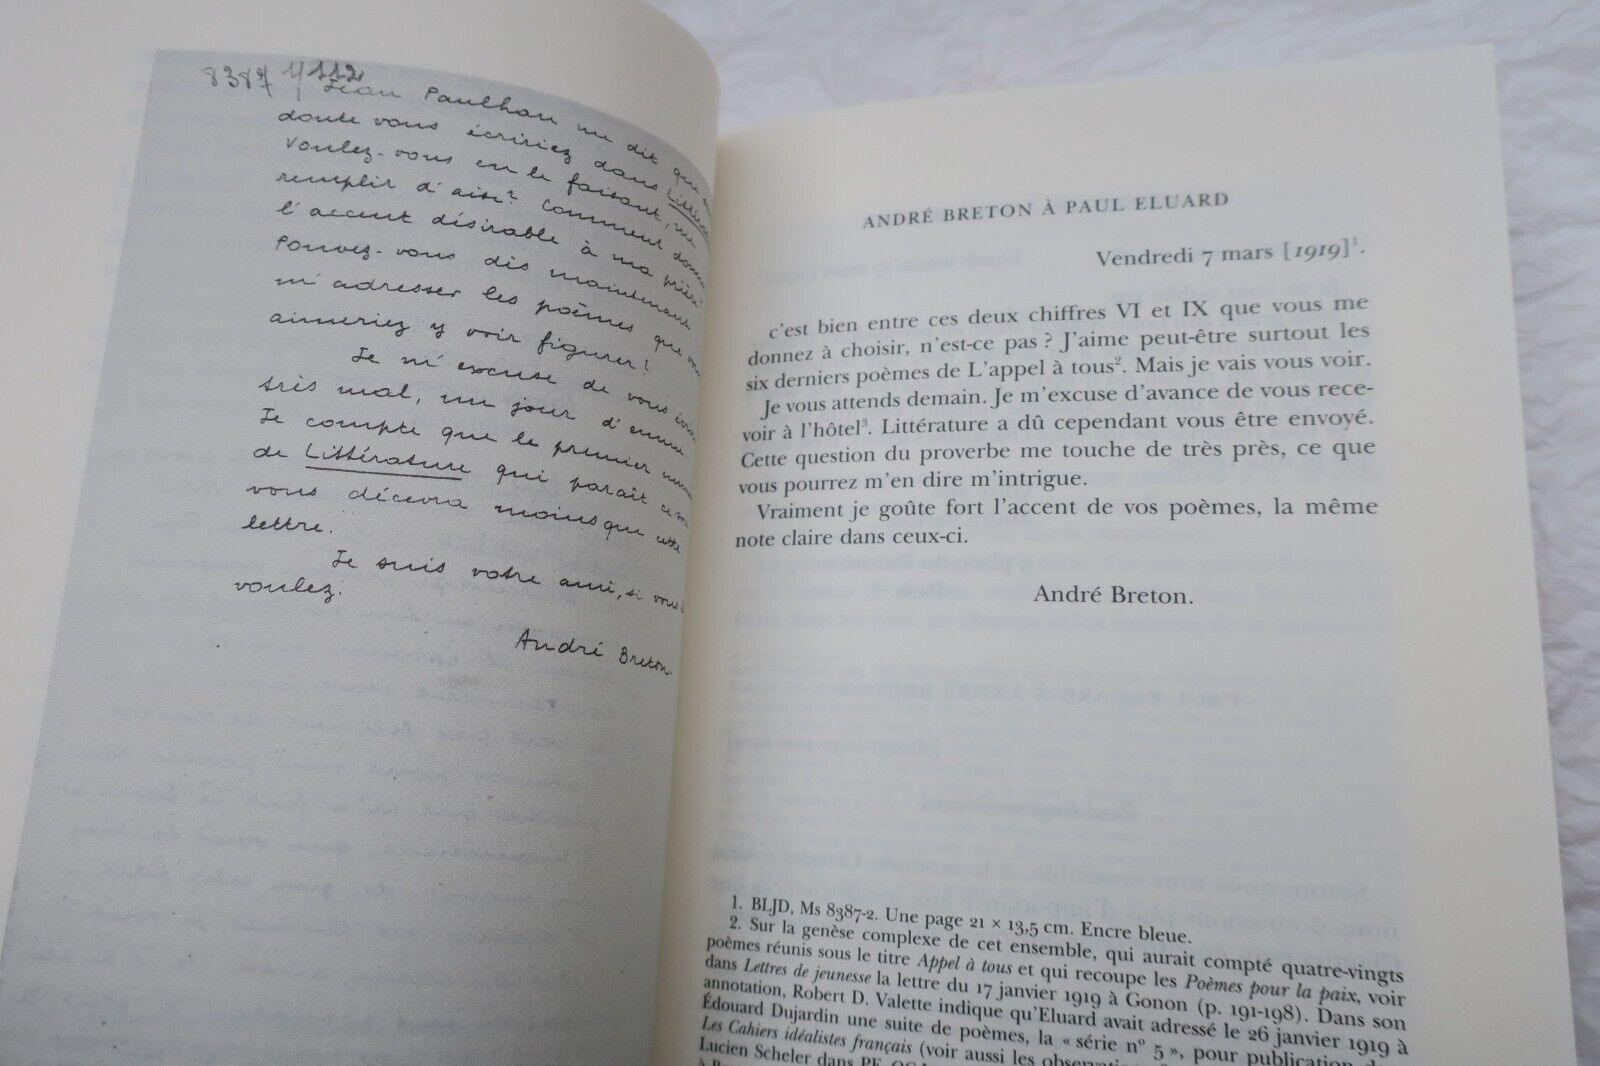 8387 1/112
Jean Paulhan me dit que
doute vous écririez dans
Voulez-vous en le faisant, me
remplir d'aise? Comment donner
l'accent désirable à ma prière?
Pouvez-vous dès maintenant
m'adresser les poèmes que
aimeriez y voir figurer?
Je m'excuse de vous
très mal, un jour d'ennui.
Je compte que le premier
de Littérature qui paraît ce
vous décevra moins que cette
lettre.
Je suis votre ami, si vous
voulez.
André Breton
ANDRÉ BRETON À PAUL ELUARD
Vendredi 7 mars [1919]¹.
c'est bien entre ces deux chiffres VI et IX que vous me
donnez à choisir, n'est-ce pas ? J'aime peut-être surtout les
six derniers poèmes de L'appel à tous². Mais je vais vous voir.
Je vous attends demain. Je m'excuse d'avance de vous rece-
voir à l'hôtel³. Littérature a dû cependant vous être envoyé.
Cette question du proverbe me touche de très près, ce que
vous pourrez m'en dire m'intrigue.
Vraiment je goûte fort l'accent de vos poèmes, la même
note claire dans ceux-ci.
André Breton.
1. BLJD, Ms 8387-2. Une page 21 × 13,5 cm. Encre bleue.
2. Sur la genèse complexe de cet ensemble, qui aurait compté quatre-vingts
poèmes réunis sous le titre Appel à tous et qui recoupe les Poèmes pour la paix, voir
dans Lettres de jeunesse la lettre du 17 janvier 1919 à Gonon (p. 191-198). Dans son
annotation, Robert D. Valette indique qu'Eluard avait adressé le 26 janvier 1919 à
Édouard Dujardin une suite de poèmes, la « série n° 5 », pour publication
Les Cahiers idéalistes français (voir aussi les
Lucien Scheler dans PE,